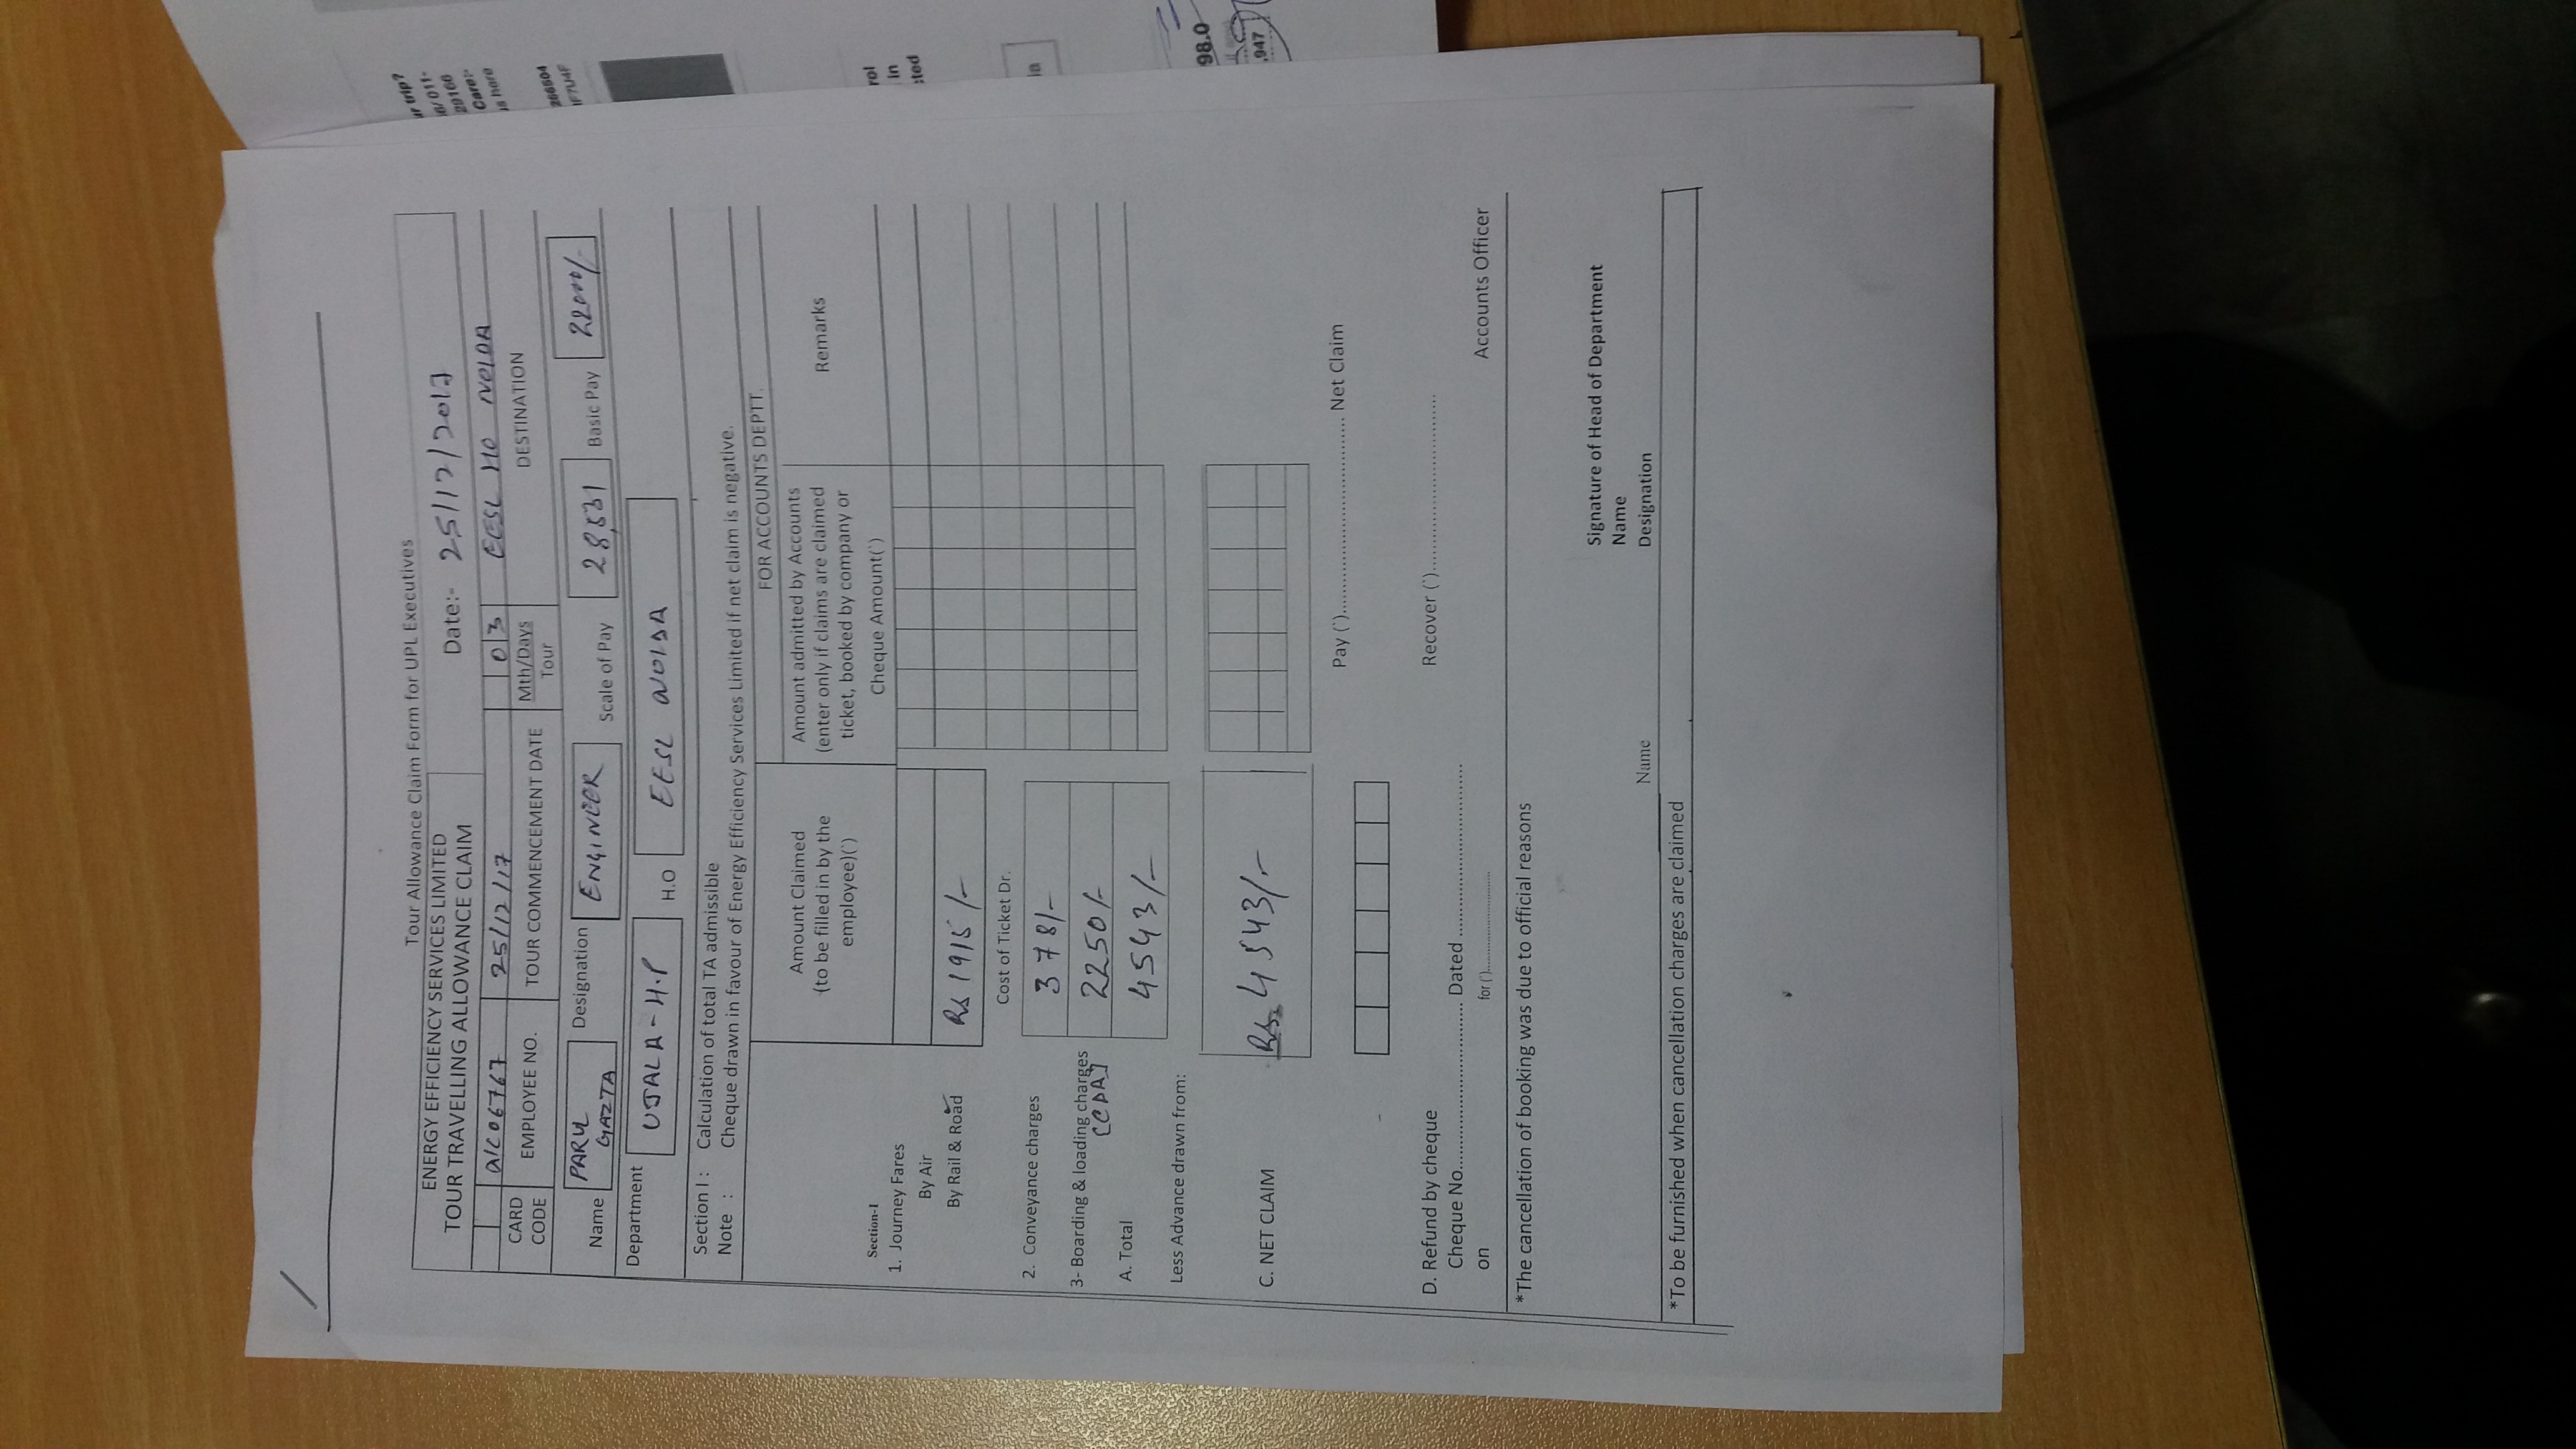 Tour Allowance Claim Form for UPL Executives
ENERGY EFFICIENCY SERVICES LIMITED
TOUR TRAVELLING ALLOWANCE CLAIM
Date:- 25/12/2017
25/12/17 03 EESL HO NOIDA
CARD CODE EMPLOYEE NO. TOUR COMMENCEMENT DATE Mth/Days Tour DESTINATION
Name PARUL GAZTA Designation ENGINEER Scale of Pay 28,531 Basic Pay 22000/-
Department UJALA-H.P H.O EESL NOIDA
Section I : Calculation of total TA admissible
Note : Cheque drawn in favour of Energy Efficiency Services Limited if net claim is negative.
FOR ACCOUNTS DEPTT.
Amount Claimed
(to be filled in by the
employee)(`)
Amount admitted by Accounts
(enter only if claims are claimed
ticket, booked by company or
Cheque Amount(`)
Remarks
Section-I
1. Journey Fares
By Air
By Rail & Road Rs 1915/-
Cost of Ticket Dr.
2. Conveyance charges 378/-
3- Boarding & loading charges 2250/-
[CDA]
A. Total 4543/-
Less Advance drawn from:
C. NET CLAIM Rs. 4543/-
Pay (`)................................... Net Claim
D. Refund by cheque Recover (`)................................
Cheque No................................ Dated ................................
on for (`)............................ Accounts Officer
*The cancellation of booking was due to official reasons
Signature of Head of Department
Name
Name Designation
*To be furnished when cancellation charges are claimed
ur trip?
6/ 011-
29166
Care:-
s here
266504
IF7U4F
rol
in
cted
ia
98.0
,947